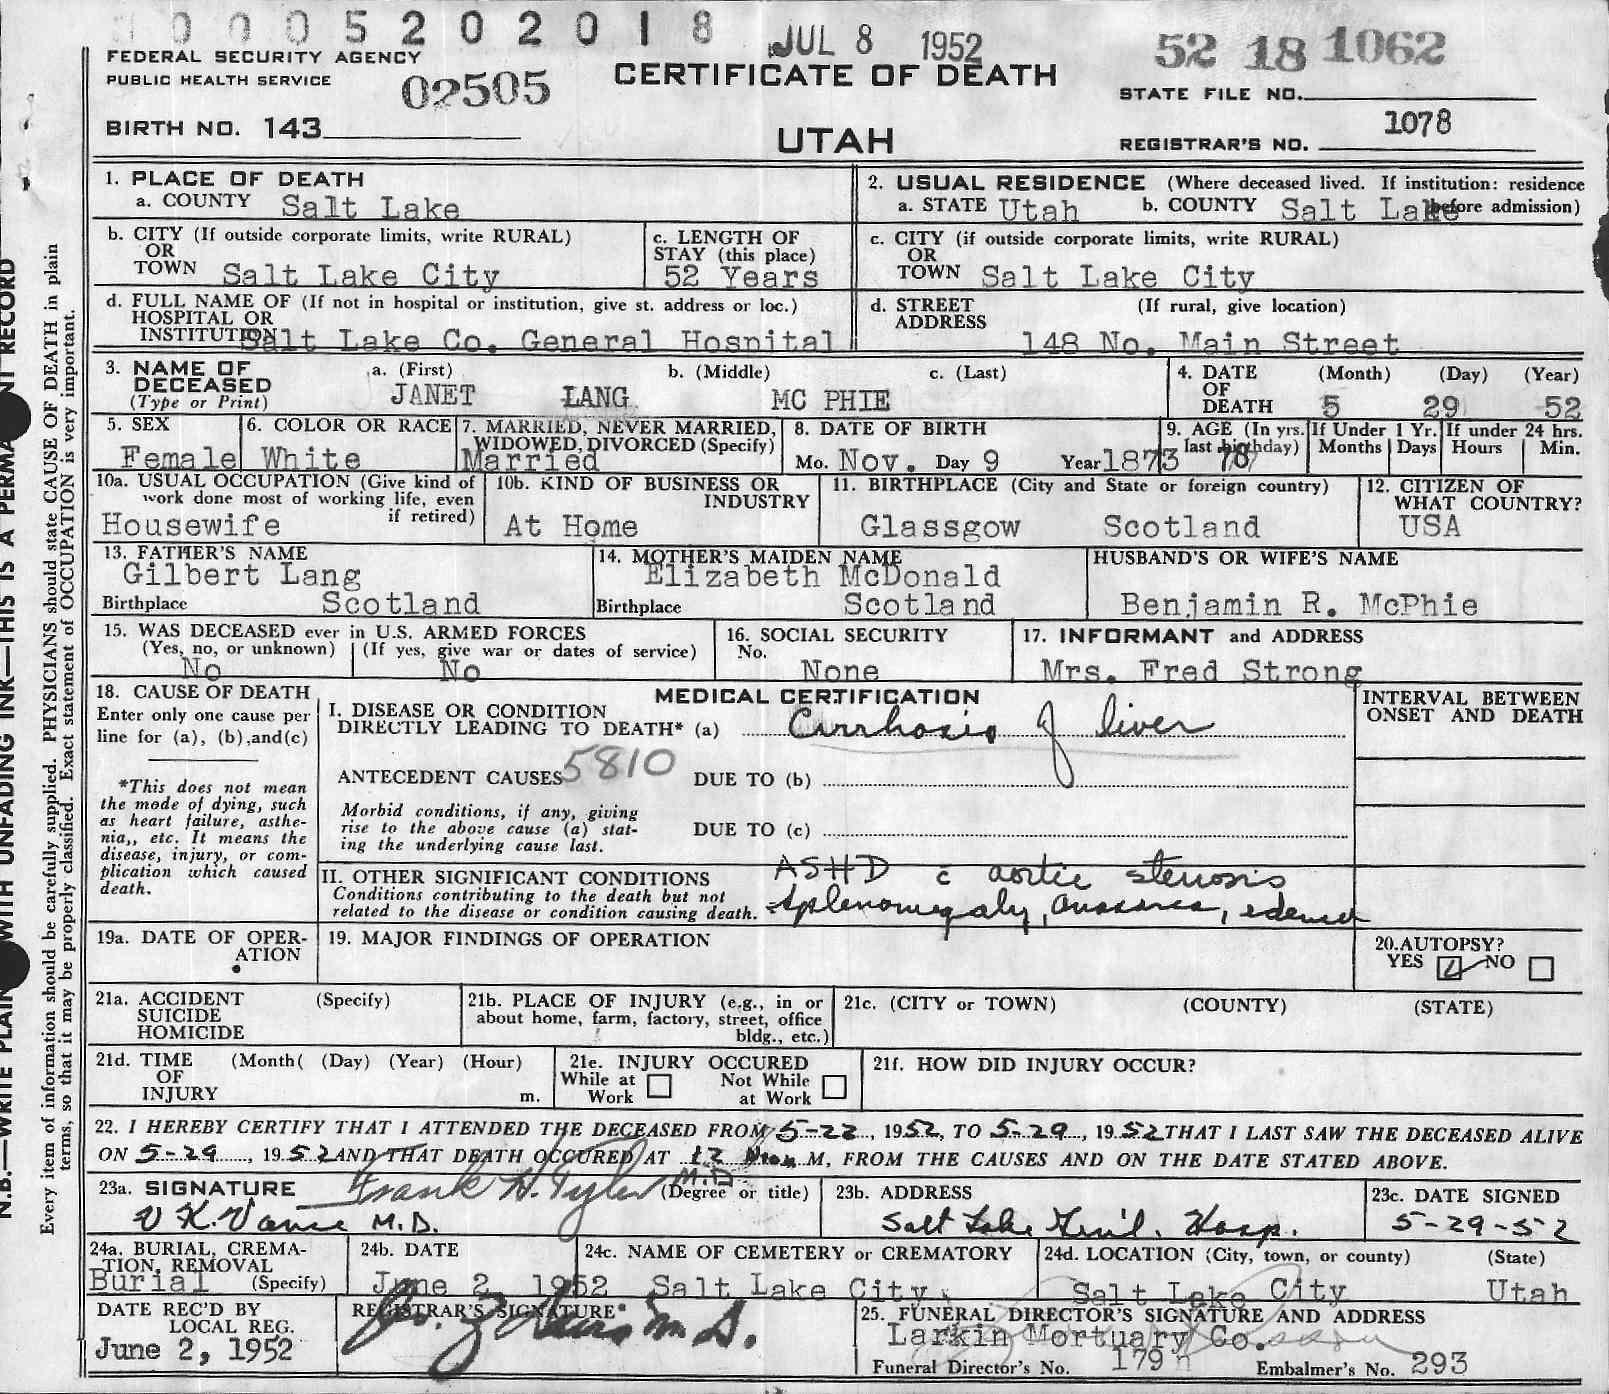 0 0 0 5 2 0 2 0 1 8 JUL 8 1952 52 18 1062
FEDERAL SECURITY AGENCY
PUBLIC HEALTH SERVICE 02505 CERTIFICATE OF DEATH STATE FILE NO.
BIRTH NO. 143 UTAH REGISTRAR'S NO. 1078
1. PLACE OF DEATH
a. COUNTY Salt Lake
2. USUAL RESIDENCE (Where deceased lived. If institution: residence before admission)
a. STATE Utah b. COUNTY Salt Lake
b. CITY (If outside corporate limits, write RURAL)
OR
TOWN Salt Lake City
c. LENGTH OF
STAY (this place)
52 Years
c. CITY (if outside corporate limits, write RURAL)
OR
TOWN Salt Lake City
d. FULL NAME OF (If not in hospital or institution, give st. address or loc.)
HOSPITAL OR
INSTITUTION Salt Lake Co. General Hospital
d. STREET (If rural, give location)
ADDRESS
148 No. Main Street
3. NAME OF a. (First) b. (Middle) c. (Last)
DECEASED JANET LANG MC PHIE
(Type or Print)
4. DATE (Month) (Day) (Year)
OF
DEATH 5 29 52
5. SEX
Female
6. COLOR OR RACE
White
7. MARRIED, NEVER MARRIED,
WIDOWED, DIVORCED (Specify)
Married
8. DATE OF BIRTH
Mo. Nov. Day 9 Year 1873
9. AGE (In yrs. last birthday) 78
If Under 1 Yr. Months Days
If under 24 hrs. Hours Min.
10a. USUAL OCCUPATION (Give kind of
work done most of working life, even
if retired)
Housewife
10b. KIND OF BUSINESS OR
INDUSTRY
At Home
11. BIRTHPLACE (City and State or foreign country)
Glassgow Scotland
12. CITIZEN OF
WHAT COUNTRY?
USA
13. FATHER'S NAME
Gilbert Lang
Birthplace Scotland
14. MOTHER'S MAIDEN NAME
Elizabeth McDonald
Birthplace Scotland
HUSBAND'S OR WIFE'S NAME
Benjamin R. McPhie
15. WAS DECEASED ever in U.S. ARMED FORCES
(Yes, no, or unknown) (If yes, give war or dates of service)
No No
16. SOCIAL SECURITY
No.
None
17. INFORMANT and ADDRESS
Mrs. Fred Strong
18. CAUSE OF DEATH
Enter only one cause per
line for (a), (b), and (c)
*This does not mean
the mode of dying, such
as heart failure, asthe-
nia,, etc. It means the
disease, injury, or com-
plication which caused
death.
MEDICAL CERTIFICATION
INTERVAL BETWEEN
ONSET AND DEATH
I. DISEASE OR CONDITION
DIRECTLY LEADING TO DEATH* (a) Cirrhosis of liver
ANTECEDENT CAUSES 5810 DUE TO (b)
Morbid conditions, if any, giving
rise to the above cause (a) stat-
ing the underlying cause last.
DUE TO (c)
II. OTHER SIGNIFICANT CONDITIONS
Conditions contributing to the death but not
related to the disease or condition causing death.
ASHD c aortic stenosis
Splenomegaly, Anasarca, edema
19a. DATE OF OPER-
ATION
19. MAJOR FINDINGS OF OPERATION
20. AUTOPSY?
YES NO
21a. ACCIDENT (Specify)
SUICIDE
HOMICIDE
21b. PLACE OF INJURY (e.g., in or
about home, farm, factory, street, office
bldg., etc.)
21c. (CITY or TOWN) (COUNTY) (STATE)
21d. TIME (Month( (Day) (Year) (Hour)
OF
INJURY m.
21e. INJURY OCCURED
While at Work Not While at Work
21f. HOW DID INJURY OCCUR?
22. I HEREBY CERTIFY THAT I ATTENDED THE DECEASED FROM 5-22, 1952, TO 5-29, 1952 THAT I LAST SAW THE DECEASED ALIVE
ON 5-29, 1952 AND THAT DEATH OCCURED AT 12 Noon M, FROM THE CAUSES AND ON THE DATE STATED ABOVE.
23a. SIGNATURE Frank H. Tyler M.D. (Degree or title)
V K. Vance M.D.
23b. ADDRESS
Salt Lake Gen'l. Hosp.
23c. DATE SIGNED
5-29-52
24a. BURIAL, CREMA-
TION, REMOVAL
Burial (Specify)
24b. DATE
June 2, 1952
24c. NAME OF CEMETERY or CREMATORY
Salt Lake City,
24d. LOCATION (City, town, or county) (State)
Salt Lake City Utah
DATE REC'D BY
LOCAL REG.
June 2, 1952
REGISTRAR'S SIGNATURE
M.D.
25. FUNERAL DIRECTOR'S SIGNATURE AND ADDRESS
Larkin Mortuary Co.
Funeral Director's No. 179 Embalmer's No. 293
N.B.—WRITE PLAINLY WITH UNFADING INK—THIS IS A PERMANENT RECORD
Every item of information should be carefully supplied. PHYSICIANS should state CAUSE OF DEATH in plain
terms, so that it may be properly classified. Exact statement of OCCUPATION is very important.